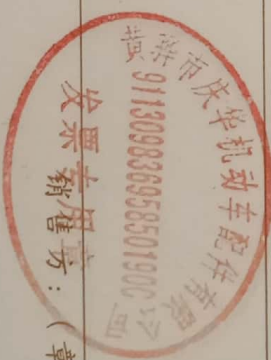 黄骅市庆华机动车配件有限公司
91130983695850190C
发票专用章
销售方：（章